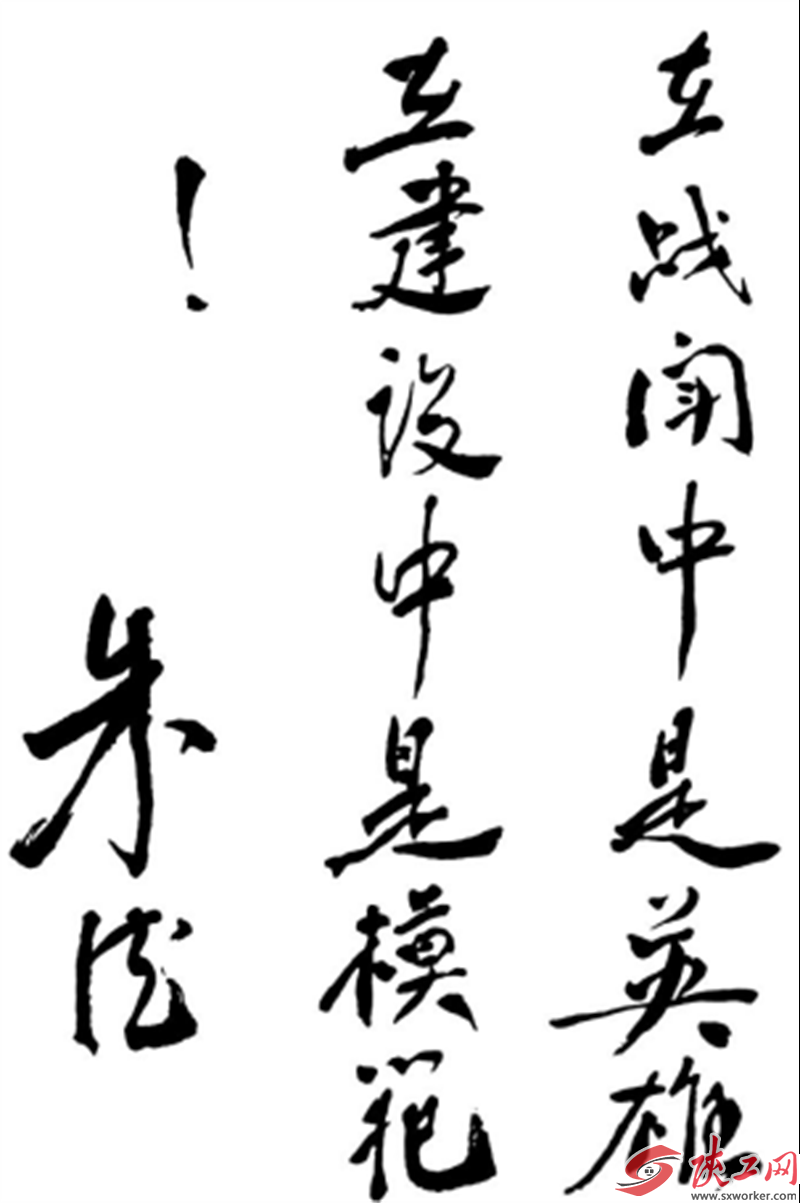 在战闘中是英雄
在建设中是模范
！
朱德
陕工网
www.sxworker.com